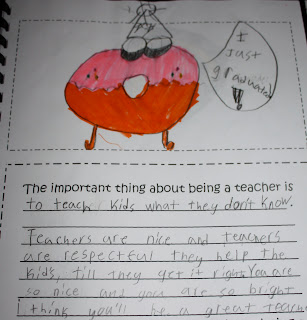 I
just
graduate
The important thing about being a teacher is
to teach kids what they don't know.
Teachers are nice and teachers
are respectful they help the
kids, till they get it right. You are
so nice and you are so bright
I think you'll be a great teacher